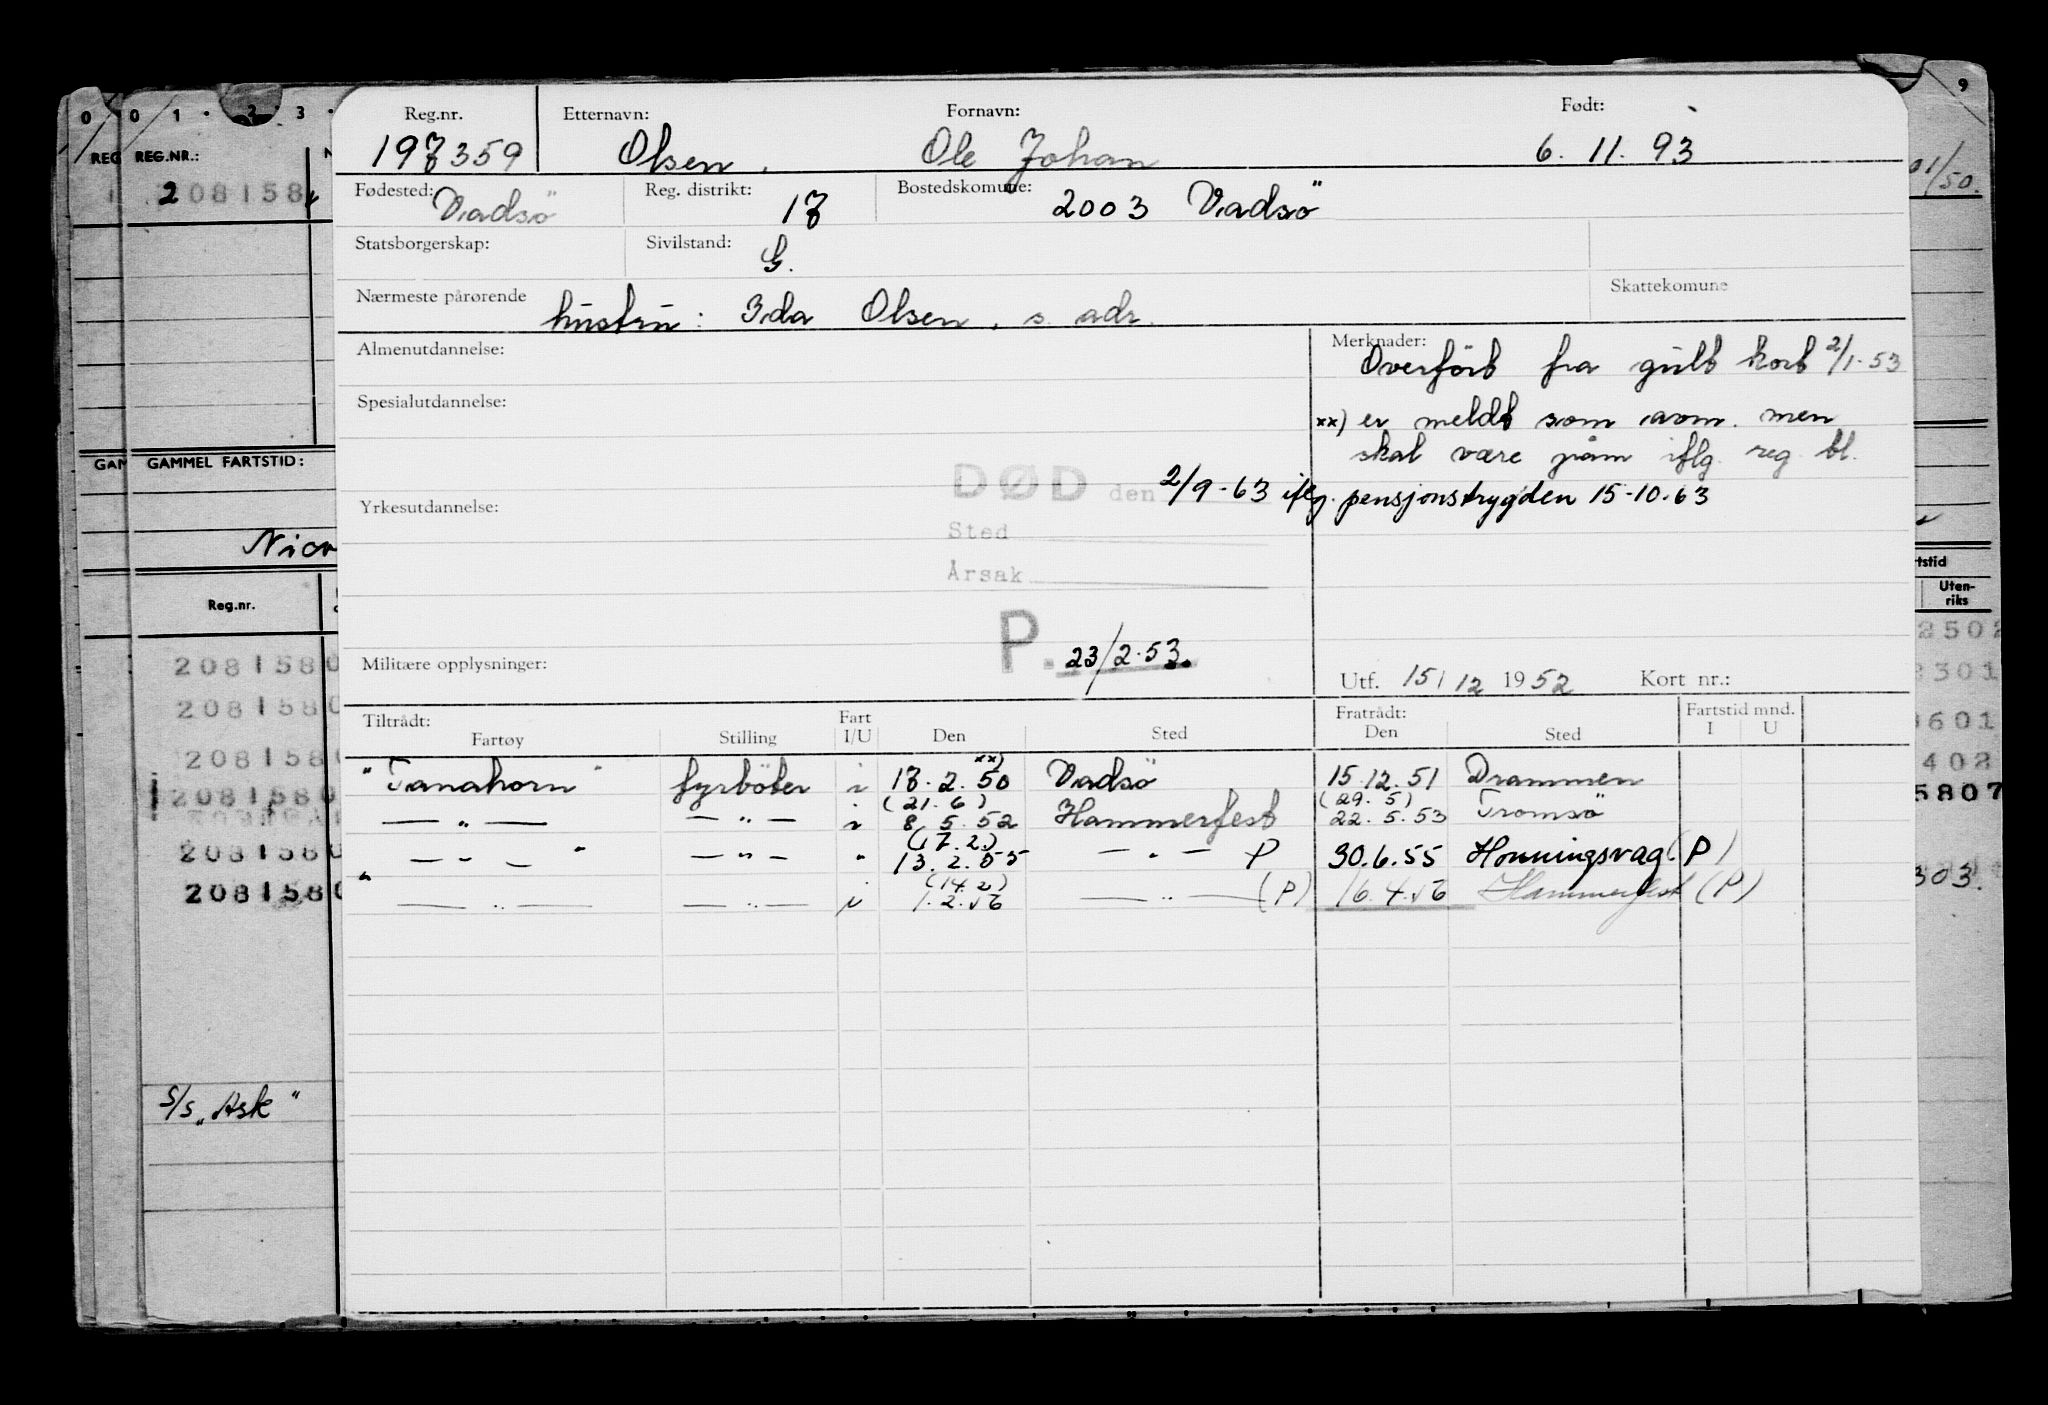 0 0 1 · 2 · 3 · 9
REG REG.NR.:
208158
01/50.
GAM GAMMEL FARTSTID:
Reg.nr.
rtstid
Uten-
riks
2081580
2081580
2081580
2081580
2081580
2081580
2502
2301
601
402
5807
303.
S/s „Ask"
Reg.nr. Etternavn: Fornavn: Født:
197359 Olsen, Ole Johan 6. 11. 93
Fødested: Vadsö Reg. distrikt: 17 Bostedskomune: 2003 Vadsö
Statsborgerskap: Sivilstand: G.
Nærmeste pårørende hustru: Ida Olsen, s. adr. Skattekomune
Almenutdannelse: Merknader:
Overfört fra gult kort 2/1-53
Spesialutdannelse: xx) er meldt som avm. men
skal være påm iflg. reg. bl.
DØD den 2/9-63 iflg. pensjonstrygden 15-10.63
Yrkesutdannelse:
Sted
Årsak
P. 23/2.53.
Militære opplysninger:
Utf. 15/12 1952 Kort nr.:
Tiltrådt: Fratrådt: Fartstid mnd.
Fartøy Stilling Fart I/U Den Sted Den Sted I U
"Tanahorn" fyrböter i 17.2.50 xx) Vadsö 15.12.51 Drammen
(21.6) (29.5)
— " — — " — i 8.5.52 Hammerfest 22.5.53 Tromsö
(17.2)
— " — — " — " 13.2.55 — " — P 30.6.55 Honningsvag (P)
(14.2)
— " — — " — i 1.2.56 — " — (P) 16.4.56 Hammerfest (P)